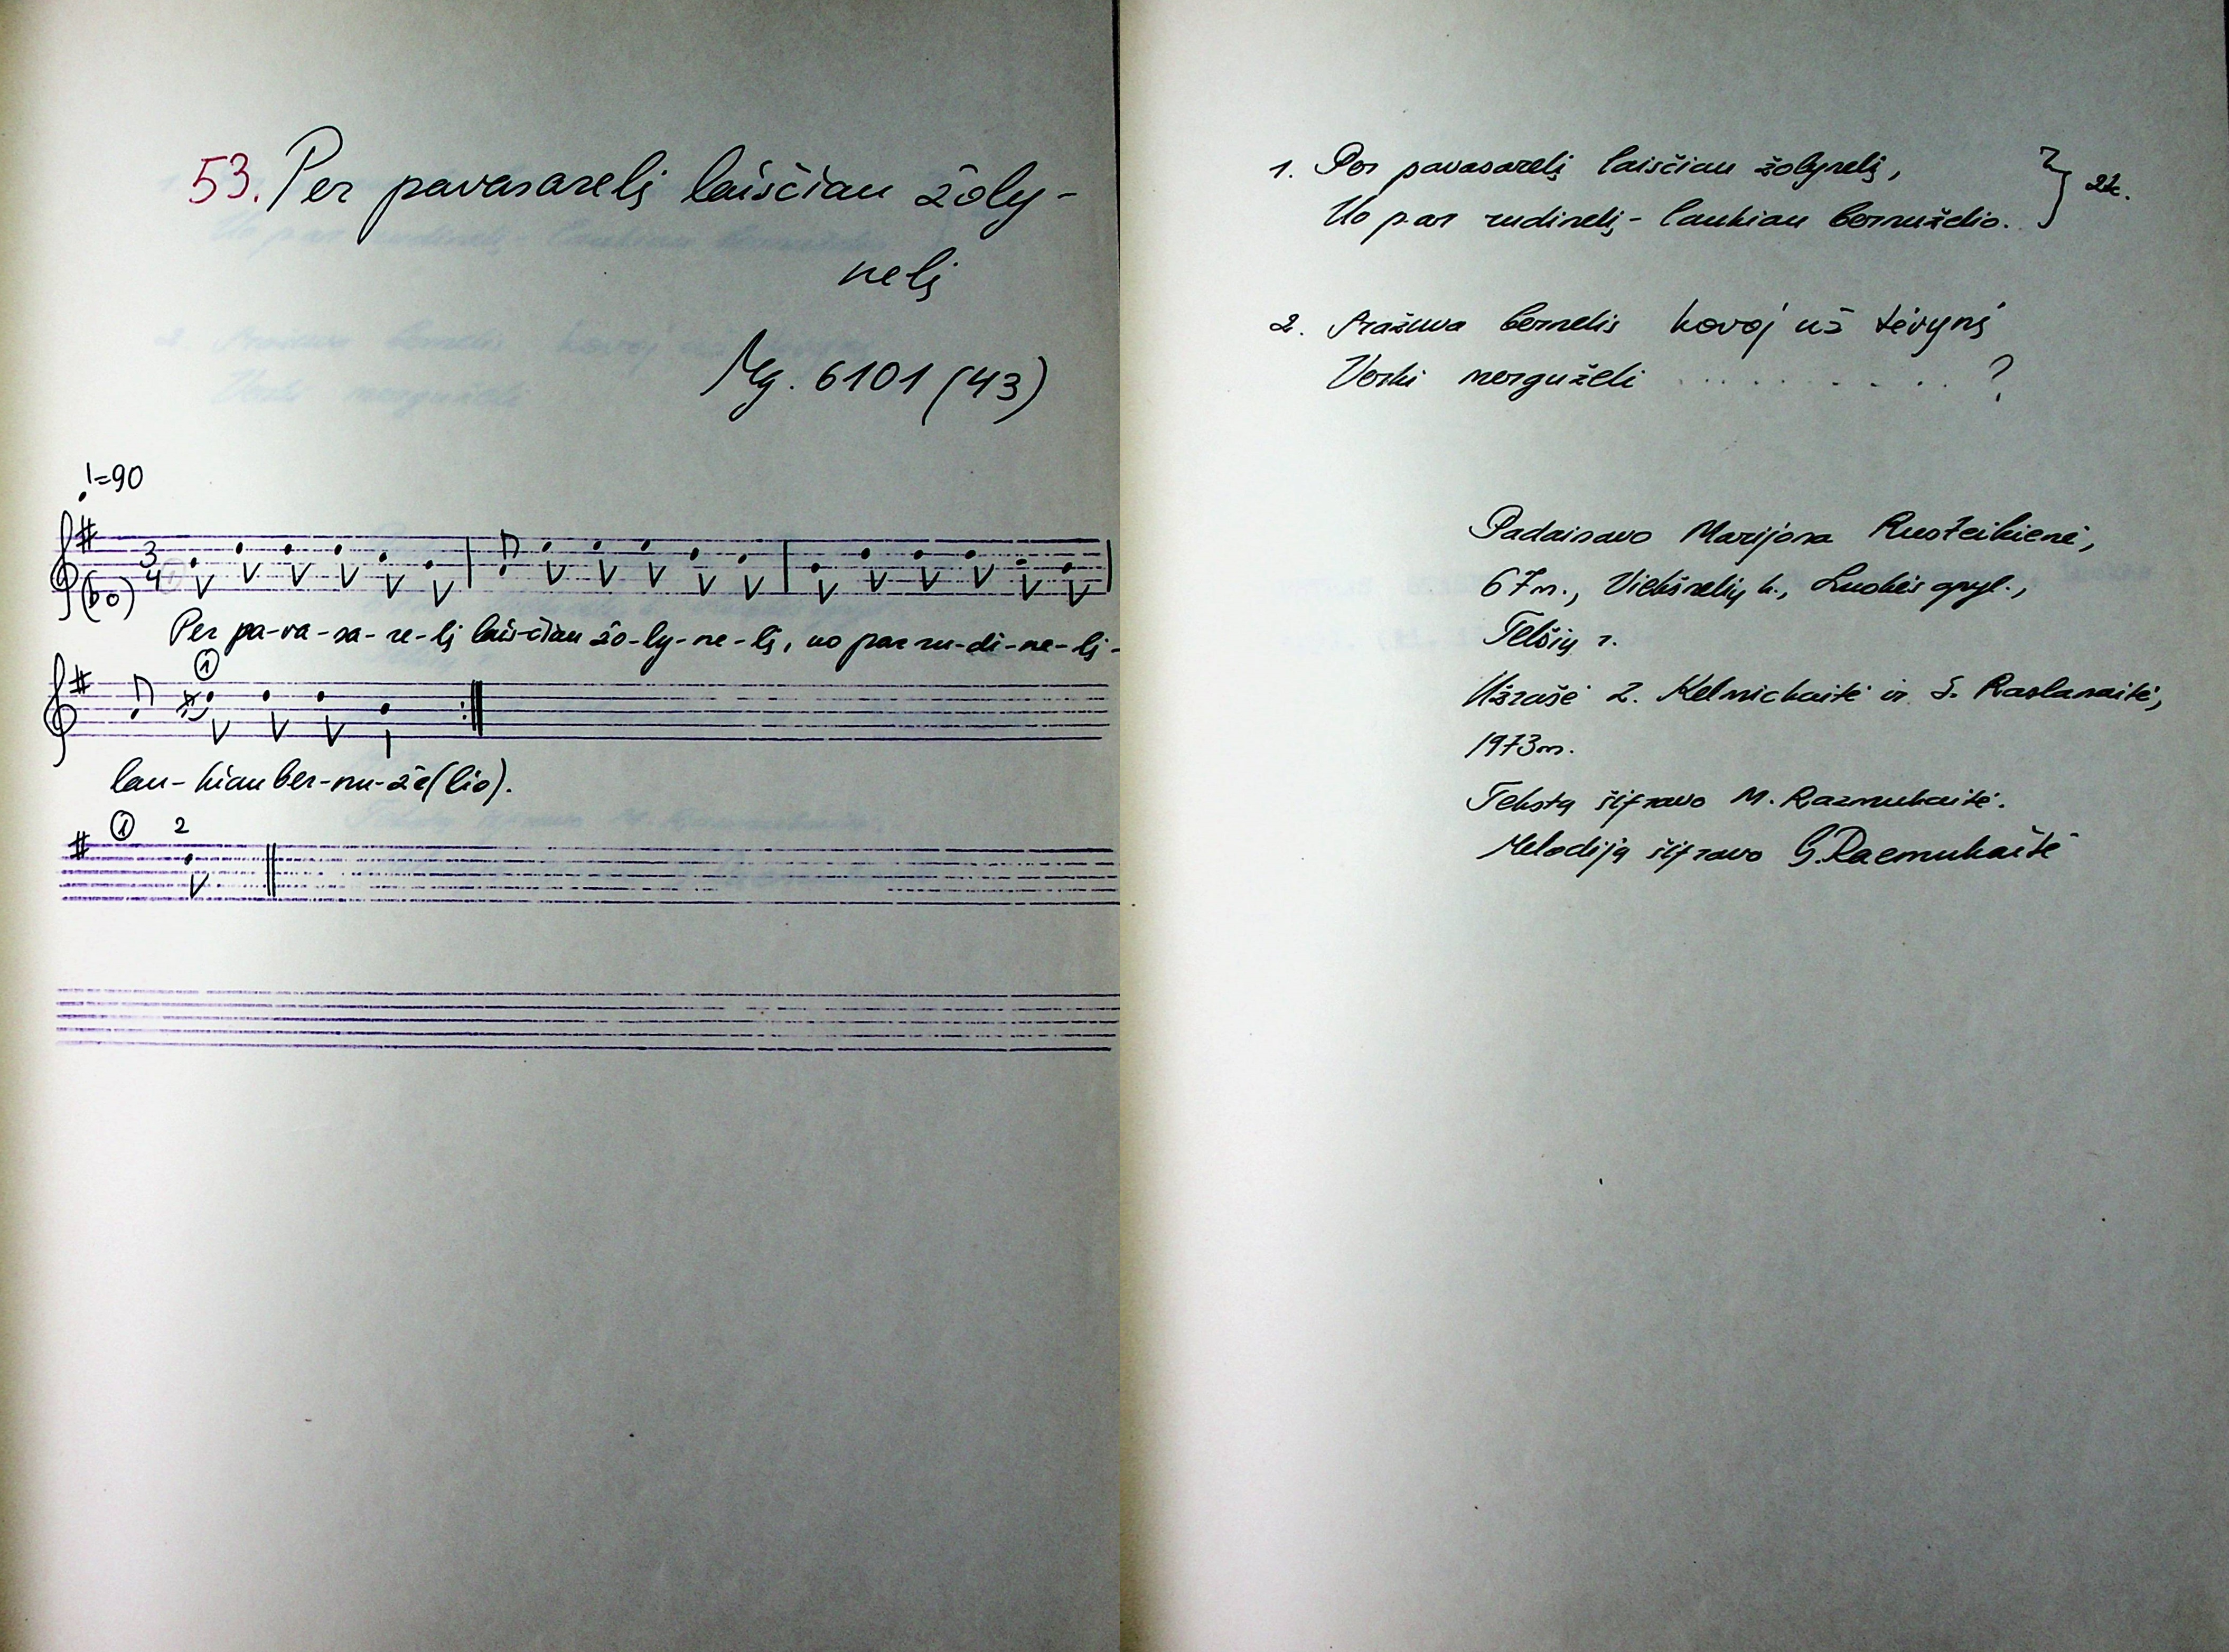 53. Per pavasarelį laisčiau žoly-
nelį
Mg. 6101 (43)
♩=90
3
4
(bo)
Per pa-va-sa-re-lį lais-čiau žo-ly-ne-lį, uo par ru-di-ne-lį-
1
lau-kiau ber-nu-žė(lio).
1 2
1. Per pavasarelį laisčiau žolynelį,
Uo par rudinelį- laukiau bernuželio. } 2k.
2. Pražuva bernelis kovoj už tėvynį
Verki merguželi .......... ?
Padainavo Marijona Rusteikienė,
67m., Viekšnelių k., Luokės apyl.,
Telšių r.
Užrašė Z. Kelmickaitė ir S. Raslanaitė,
1973m.
Tekstą šifravo M. Razmukaitė.
Melodiją šifravo G. Razmukaitė